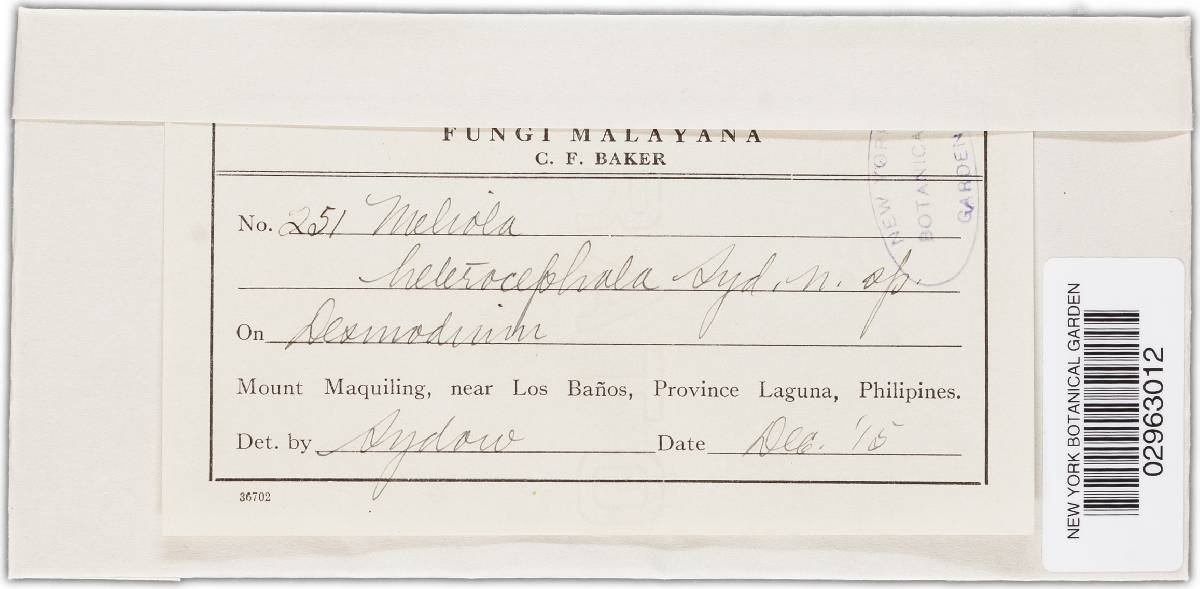 FUNGI MALAYANA
C. F. BAKER
No. 251 Meliola
heterocephala Syd. n. sp.
On Desmodium
Mount Maquiling, near Los Baños, Province Laguna, Philipines.
Det. by Sydow Date Dec. '15
36702
NEW YORK
BOTANICA
GARDEN
NEW YORK BOTANICAL GARDEN
02963012